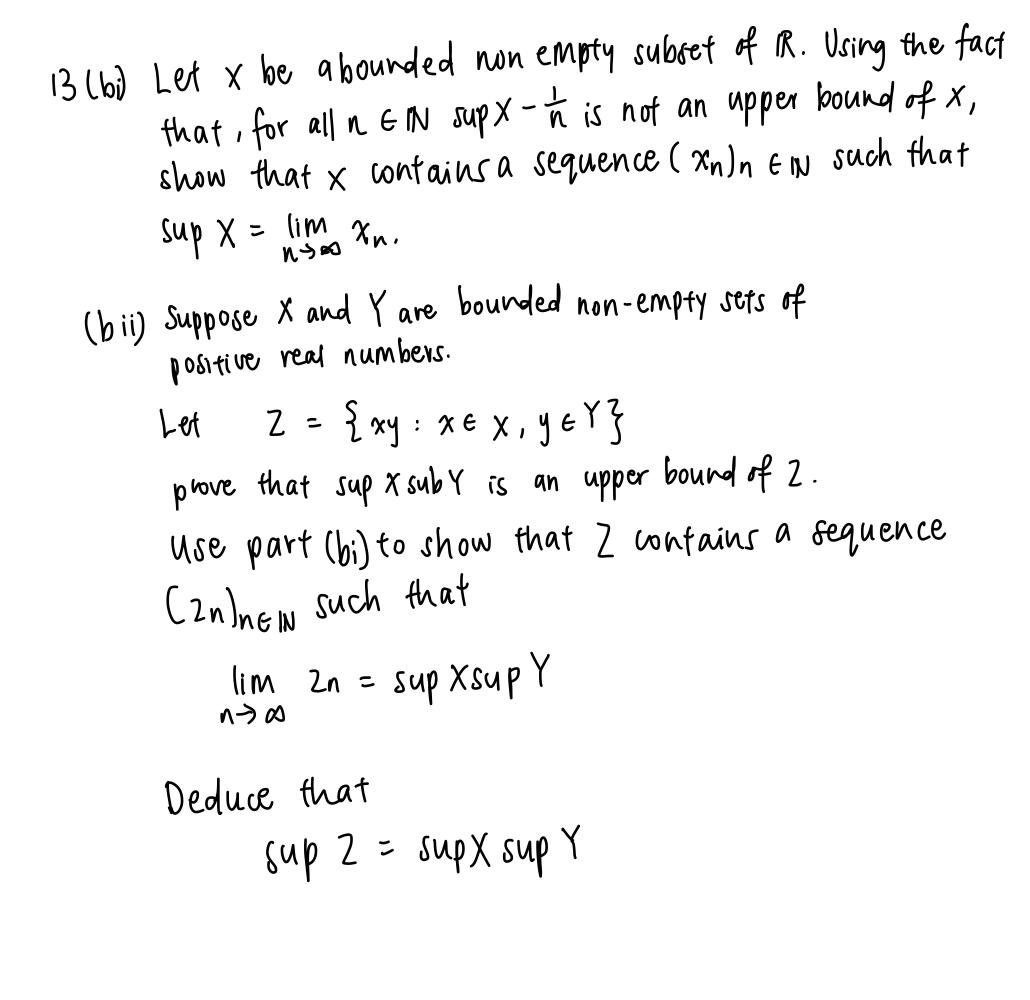 13 (bi) Let X be a bounded non empty subset of ℝ. Using the fact
that, for all n ∈ ℕ sup X - 1/n is not an upper bound of X,
show that X contains a sequence (xn)n ∈ ℕ such that
sup X = lim n→∞ xn.
(bii) Suppose X and Y are bounded non-empty sets of
positive real numbers.
Let Z = {xy : x ∈ X, y ∈ Y}
prove that sup X sub Y is an upper bound of Z.
Use part (bi) to show that Z contains a sequence
(zn)n∈ℕ such that
lim n→∞ zn = sup X sup Y
Deduce that
sup Z = sup X sup Y